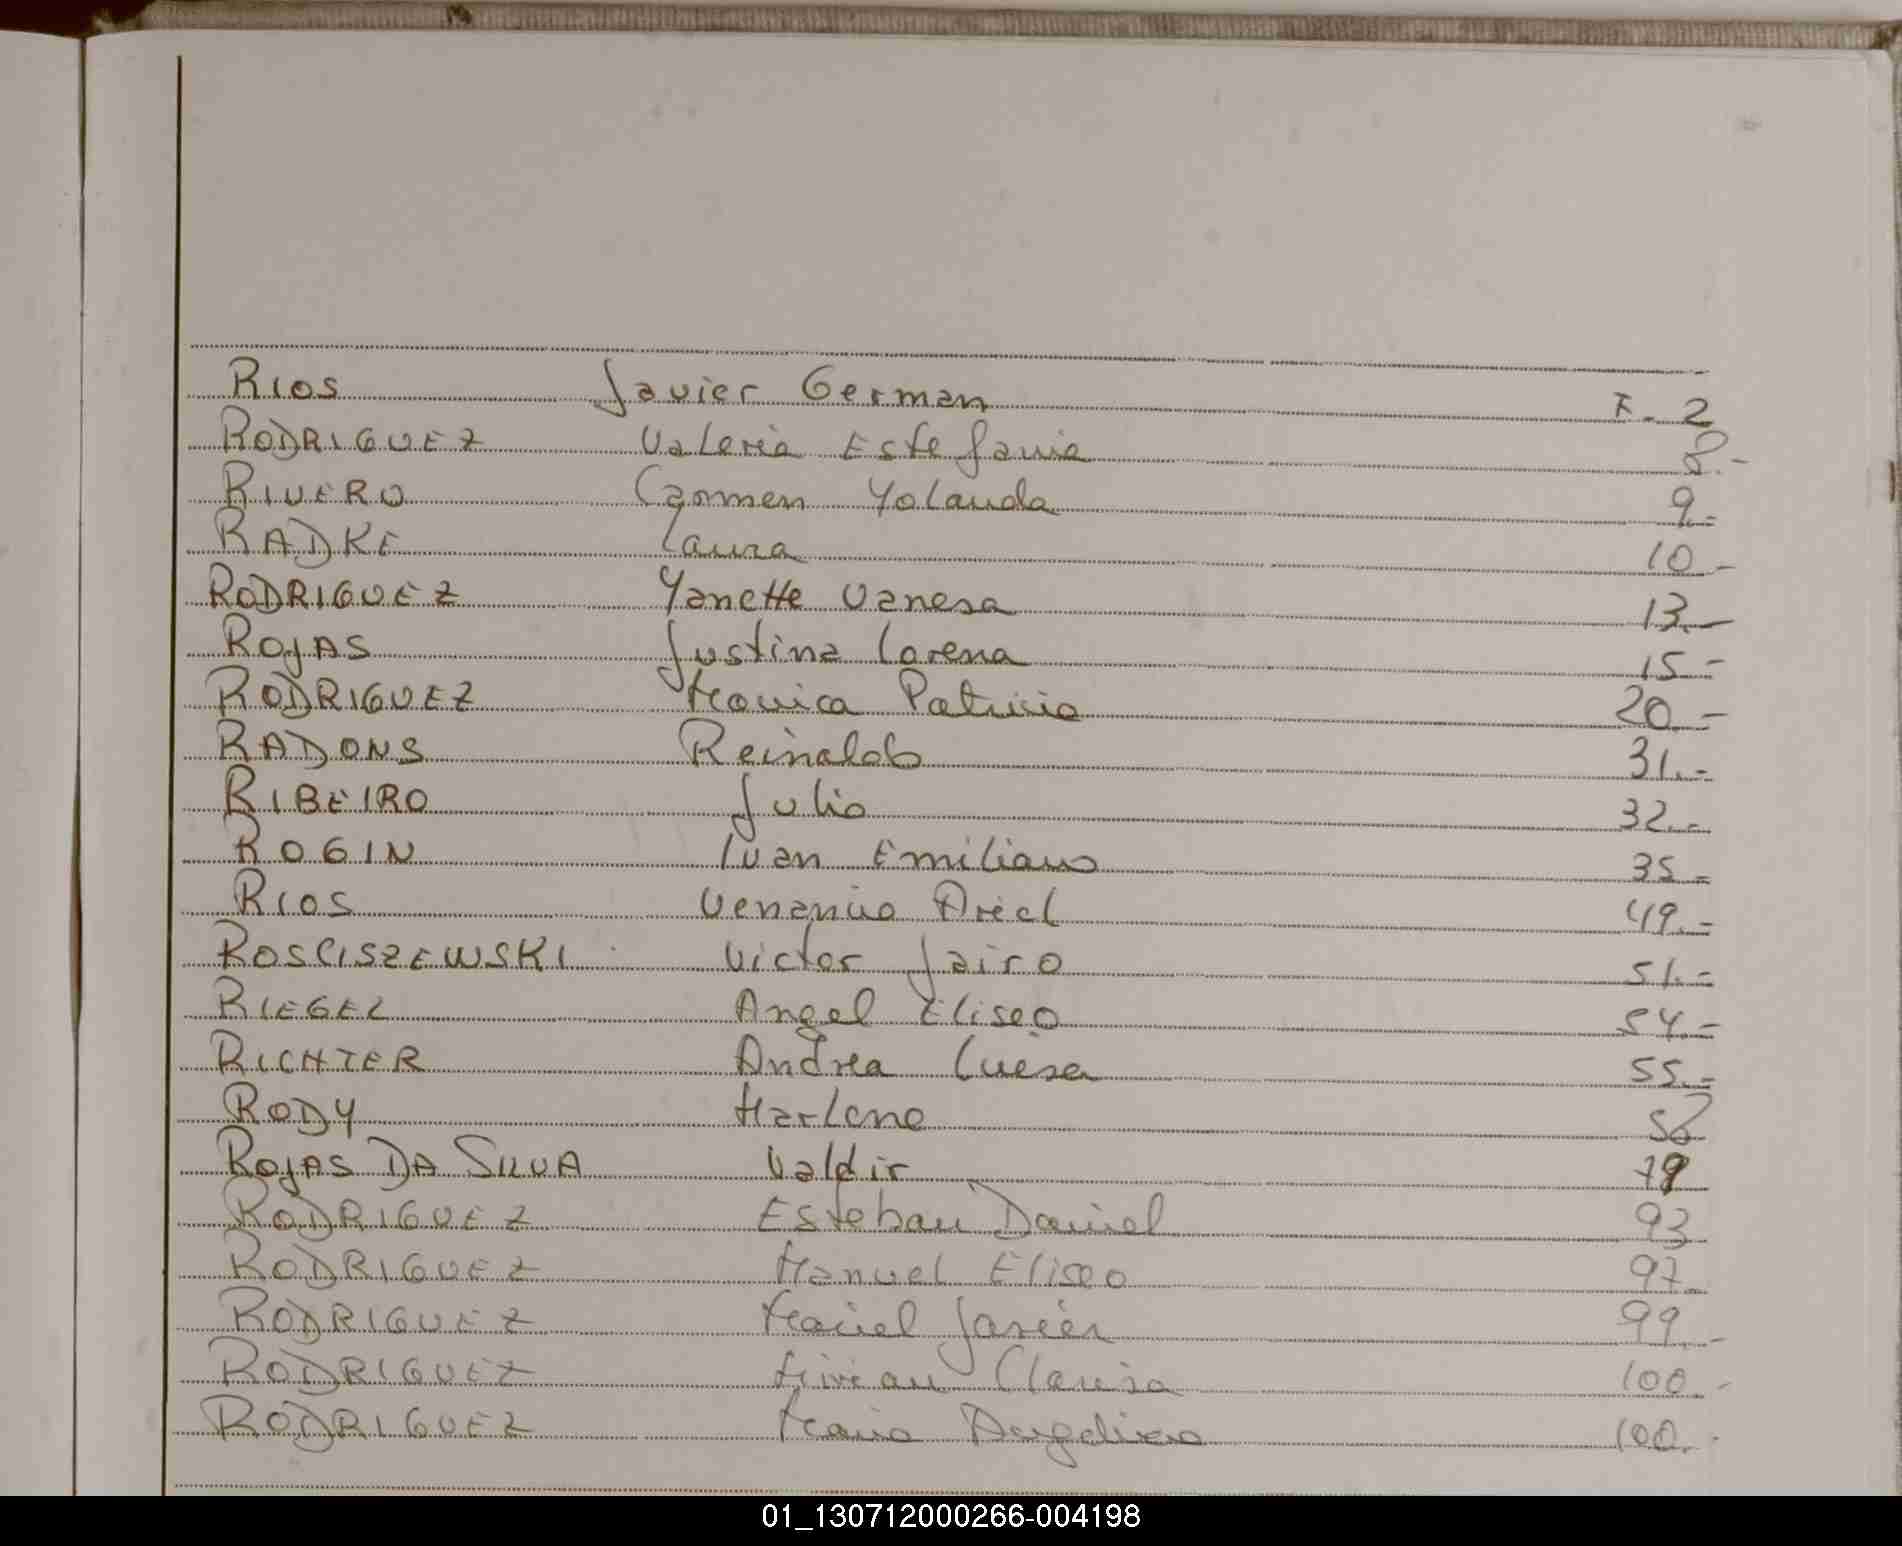 RIOS Javier German F-2
RODRIGUEZ Valeria Estefania 8.-
RIVERO Carmen Yolanda 9.-
RADKE Laura 10.-
RODRIGUEZ Yanette Vanesa 13.-
ROJAS Justina Lorena 15.-
RODRIGUEZ Monica Patricia 20.-
RADONS Reinaldo 31.-
RIBEIRO Julio 32.-
ROGIN Ivan Emiliano 35.-
RIOS Venancio Ariel 49.-
ROSCISZEWSKI Victor Jairo 51.-
RIEGEL Angel Eliseo 54.-
RICHTER Andrea Luisa 55.-
RODY Marlene
ROJAS DA SILVA Valdir
RODRIGUEZ Esteban Daniel 93
RODRIGUEZ Manuel Eliseo 97.-
RODRIGUEZ Javier 99.-
RODRIGUEZ Clarisa 100.-
RODRIGUEZ Maria Angelica 100.-
01_130712000266-004198